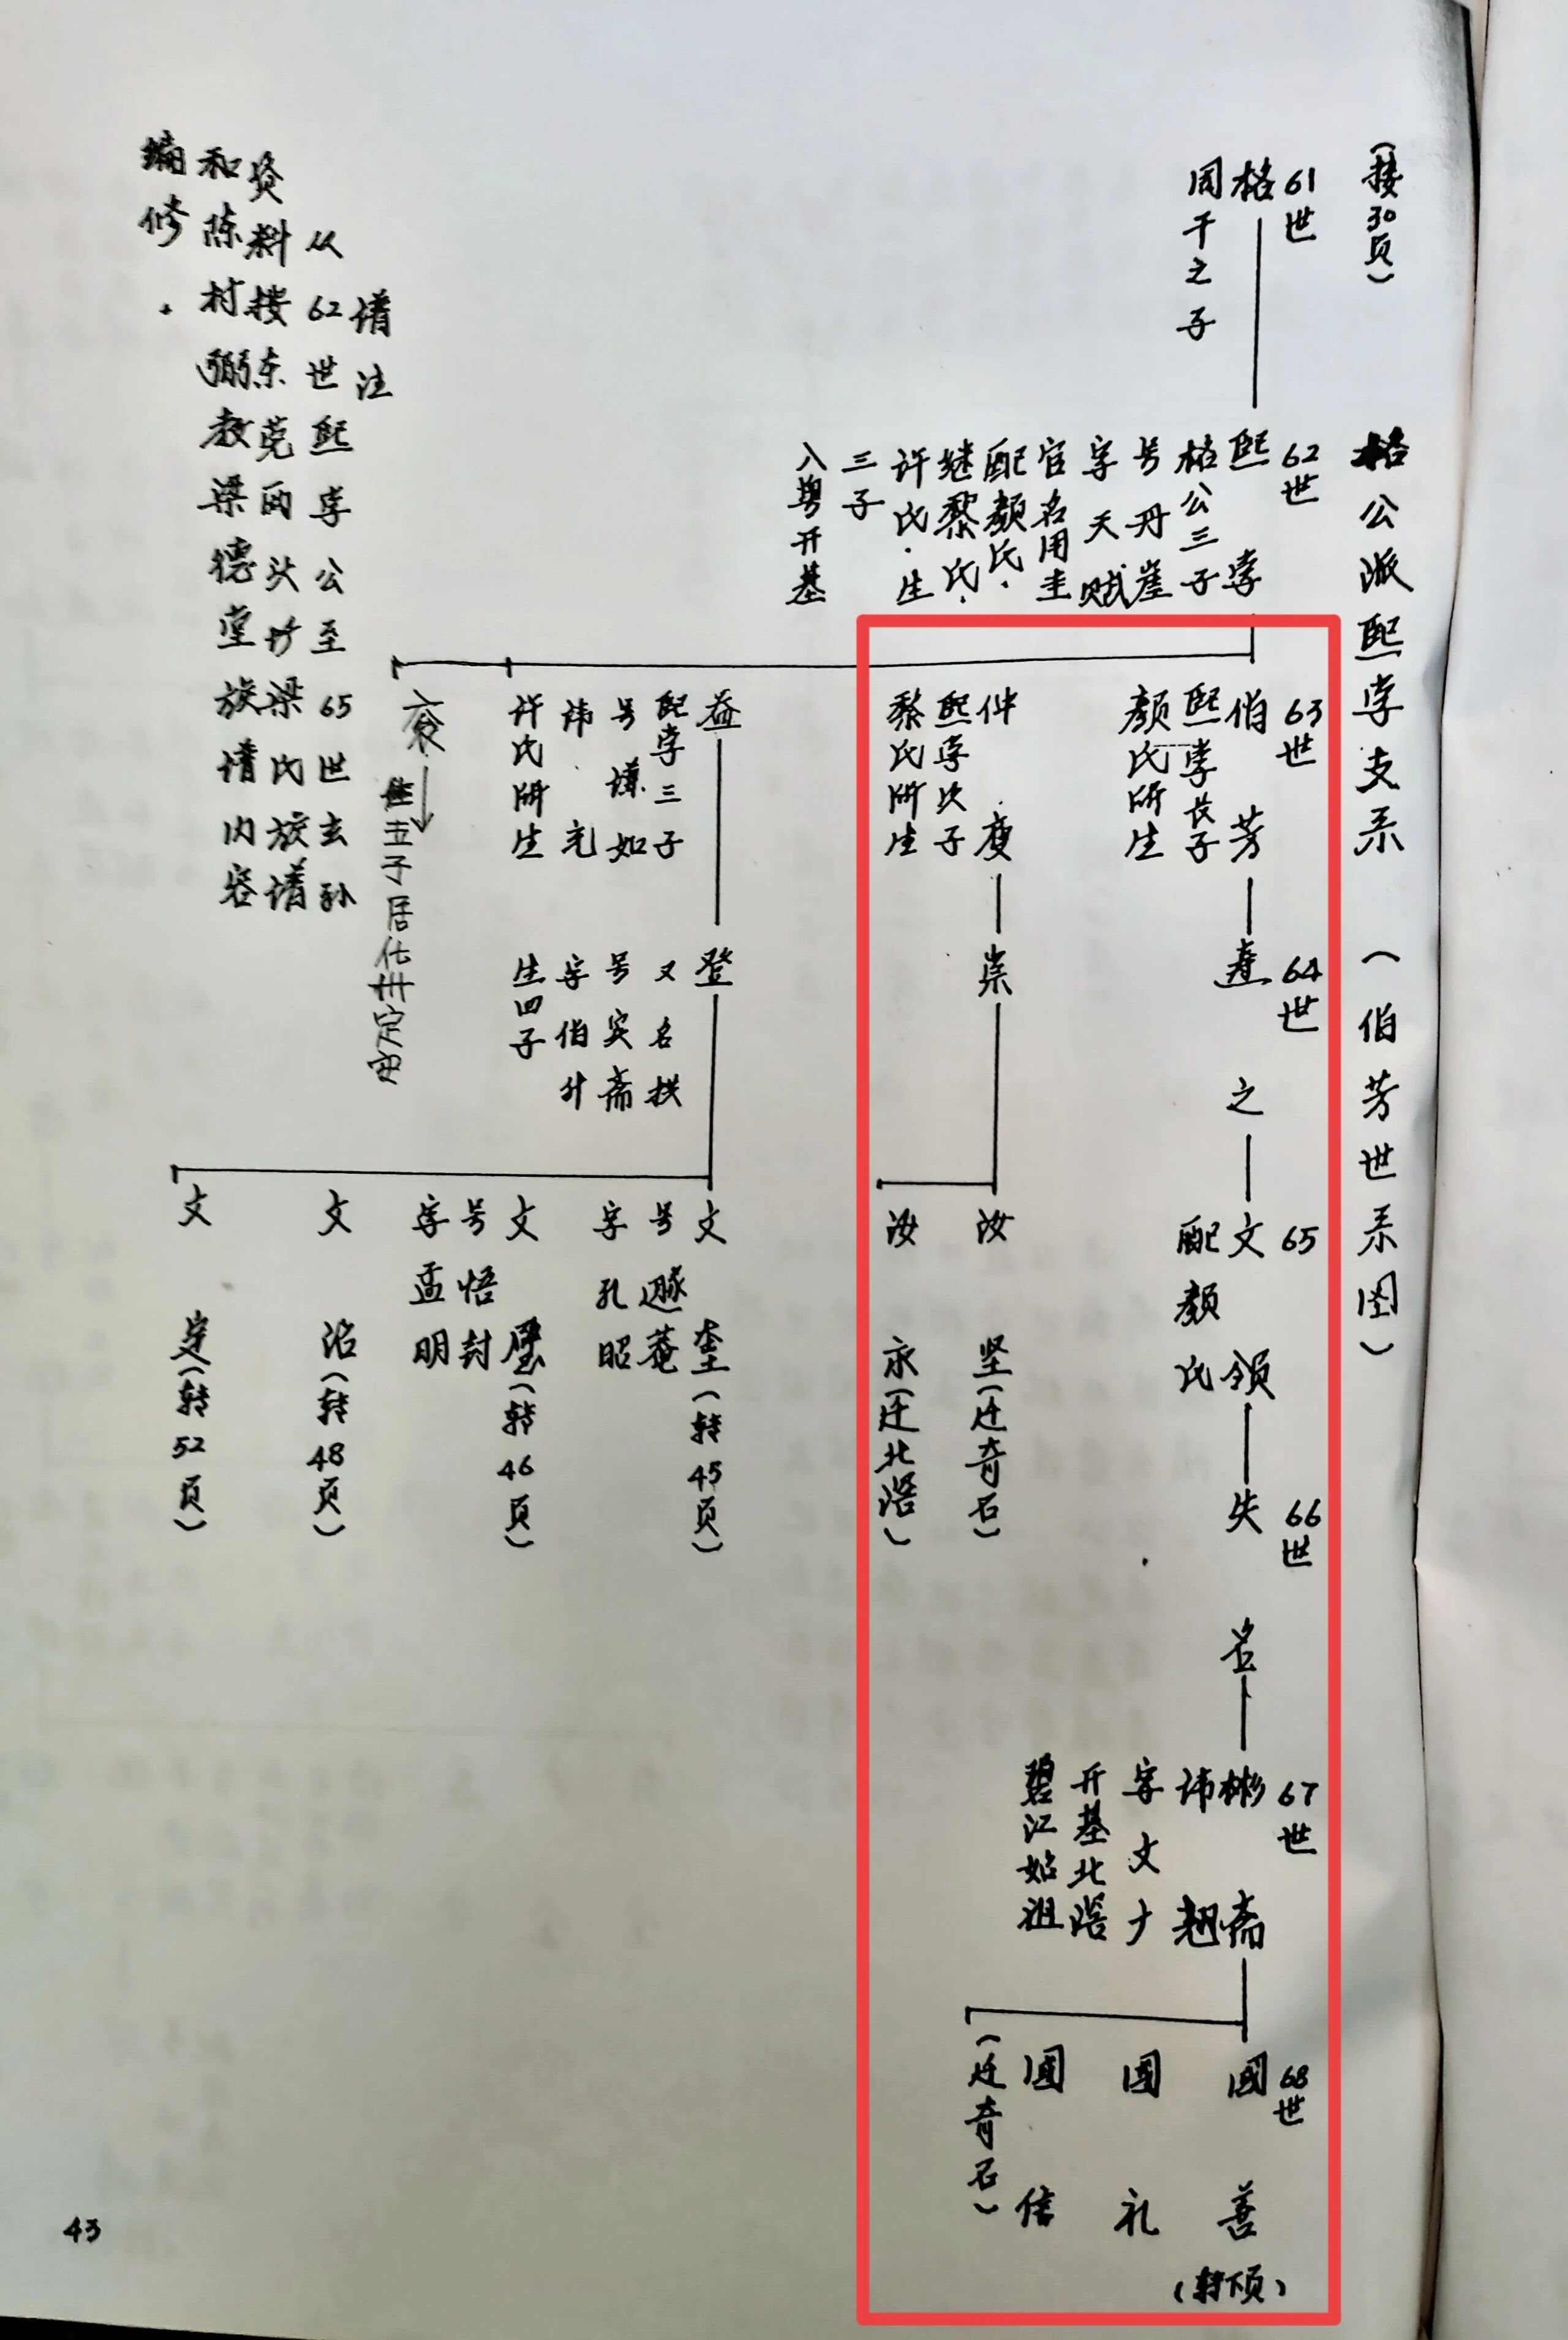 (接30页)
格公派熙孛支系 (伯芳世系图)
61世
格
周千之子
62世
熙孛
格公三子
号丹崖
字天赋
官名用圭
配颜氏.
继黎氏.
许氏.生
三子
入粤开基
63世
伯芳
熙孛长子
颜氏所生
仲
熙孛次子
黎氏所生
益
熙孛三子
号谦如
讳元
许氏所生
64世
之
崇
登
又名拱
号实斋
字伯升
生四子
65
文领
配颜氏
汝坚(迁奇石)
汝永(迁北滘)
文奎(转45页)
号遯菴
字孔昭
文璧(转46页)
号悟封
字孟明
文沼(转48页)
文定(转52页)
66世
失名
67世
彬斋
讳翘
字文才
开基北滘
碧江始祖
68世
国善
(转下页)
国礼
国信
(迁奇石)
谱注
从62世熙孛公至65世玄孙
资料接东莞西头坊梁氏族谱
和陈村弼教梁德堂族谱内容
编修.
43